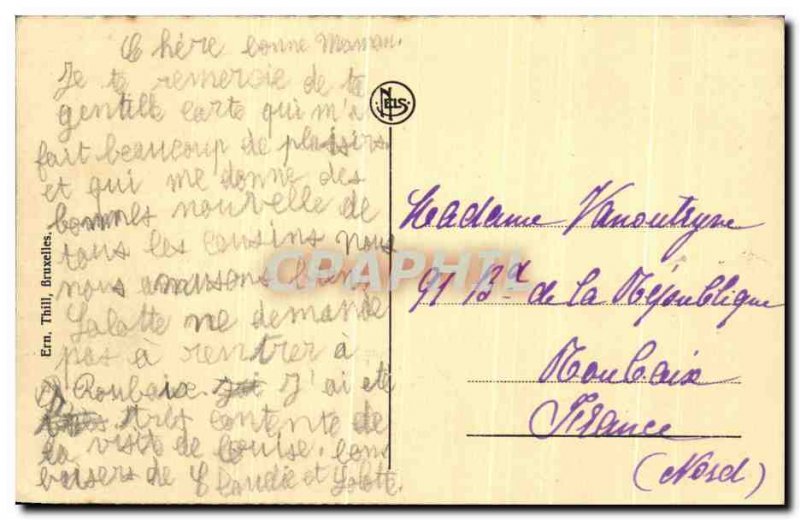 Chère bonne Maman.
Je te remercie de ta
gentille carte qui m'a
fait beaucoup de plaisirs
et qui me donne des
bonnes nouvelle de
tous les cousins nous
nous amusons bien,
Lolotte ne demande
pas à rentrer à
Roubaix. J'ai été
très contente de
la visite de Louise. bons
baisers de Claudie et Lolotte.
NELS
Ern. Thill, Bruxelles.
CPRAPHIL
Madame Vanoutryve
91 Bd de la République
Roubaix
France
(Nord)